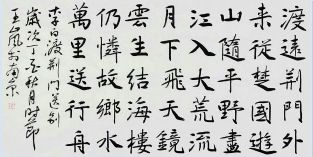 渡遠荊門外
来從楚國遊
山隨平野盡
江入大荒流
月下飛天鏡
雲生結海樓
仍憐故鄉水
萬里送行舟
李白渡荊門送別
歲次丁秋月時節
王嵐南京